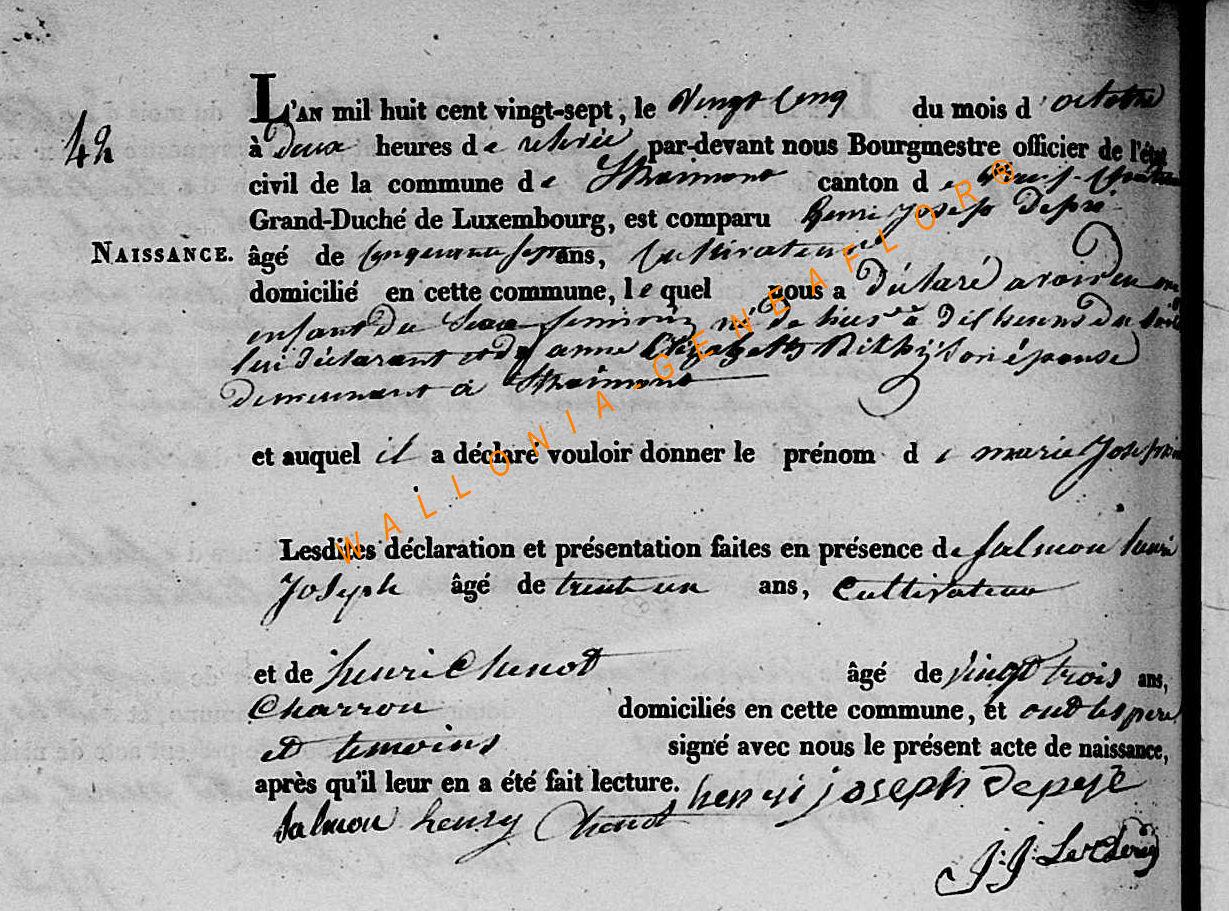 42
L'AN mil huit cent vingt-sept, le vingt cinq du mois d'octobre
à deux heures de relevée par-devant nous Bourgmestre officier de l'état
civil de la commune de Straimont canton de neuf-chateau
Grand-Duché de Luxembourg, est comparu henri joseph
NAISSANCE. âgé de cinquante sept ans, cultivateur
domicilié en cette commune, lequel nous a déclaré avoir eu un
enfant du sexe feminin né de hier à dix heures du soir
lui déclarant et d'anne Elizabeth son épouse
demeurant à Straimont
et auquel il a déclaré vouloir donner le prénom de marie Josephine
Lesdites déclaration et présentation faites en présence de salmon henri
Joseph âgé de trente un ans, cultivateur
et de henri Chenot âgé de vingt trois ans,
Charron domiciliés en cette commune, et ont les pere
et temoins signé avec nous le présent acte de naissance,
après qu'il leur en a été fait lecture. henri joseph
salmon henry Chenot
J: J: Leclercq
WALLONIA-GENEAFLOR®